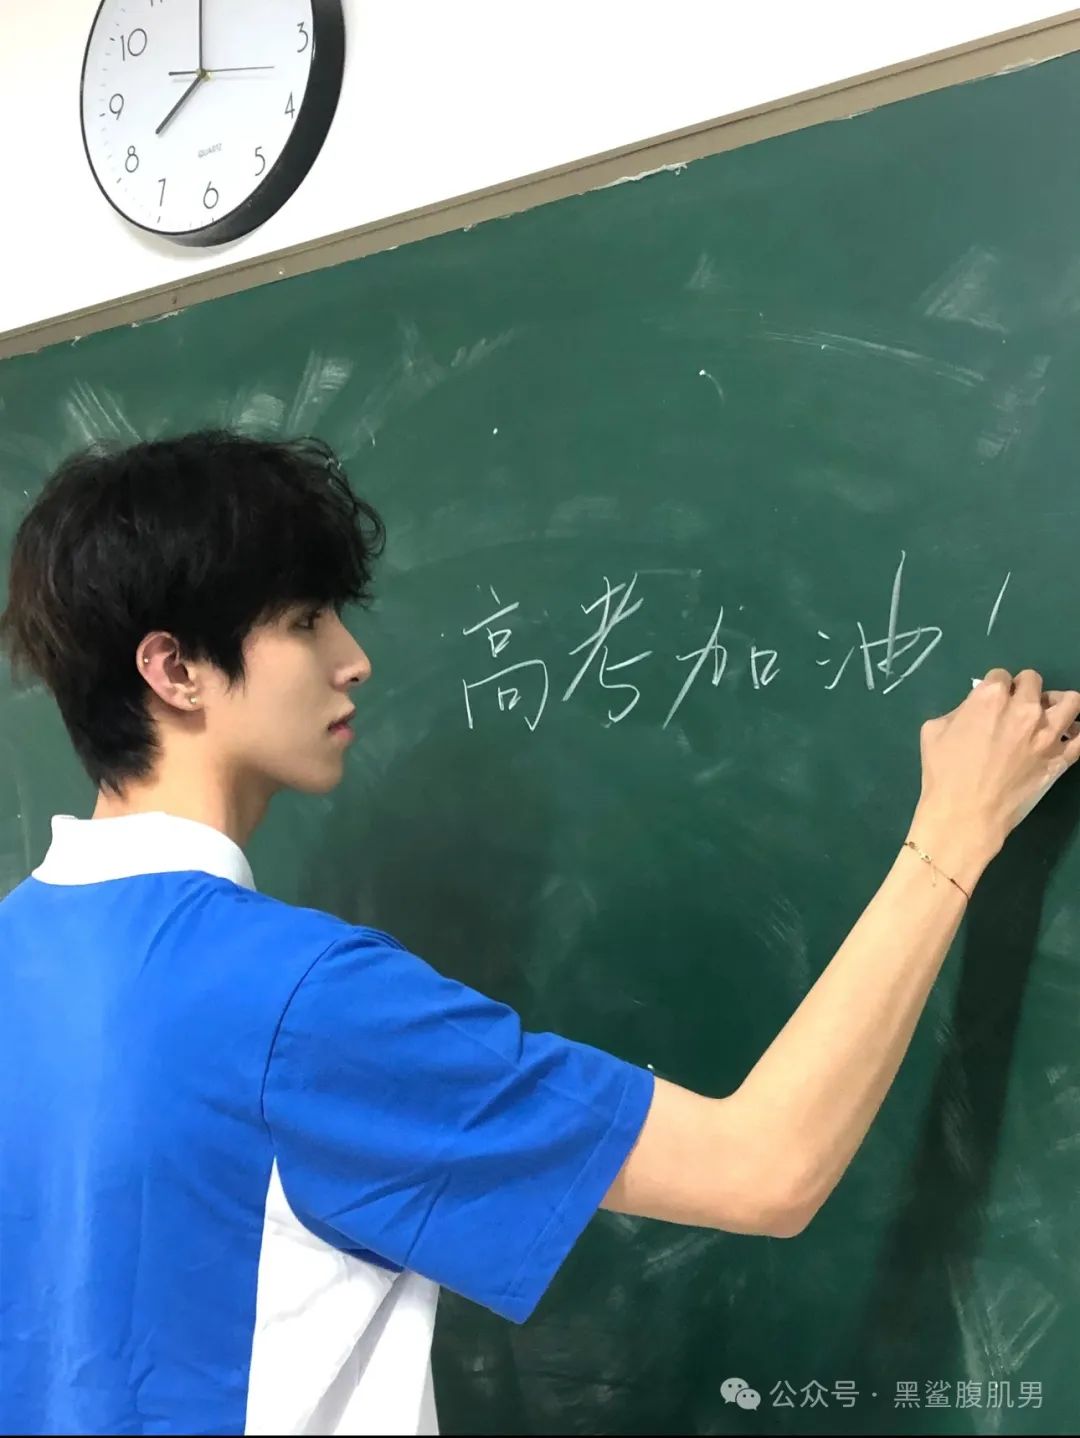 11
10
9
8
7
6
5
4
3
QUARTZ
高考加油!
公众号 · 黑鲨腹肌男